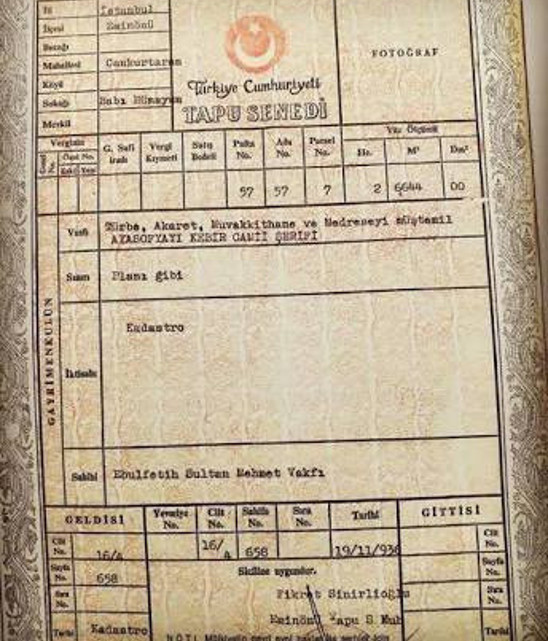 İli İstanbul
İlçesi Eminönü
Bucağı
Mahallesi Cankurtaran
Köyü
Sokağı Babı Hümayun
Mevkii
Türkiye Cumhuriyeti
TAPU SENEDİ
FOTOĞRAF
Verginin
Özel No.
Eski Yeni
G. Safi iradı
Vergi Kıymeti
Satış Bedeli
Pafta No.
Ada No.
Parsel No.
Yüz Ölçümü
He. M² Dm²
57 57 7 2 6644 00
GAYRİMENKULÜN
Vasfı Türbe, Akaret, Muvakkithane ve Medreseyi müştemil
AYASOFYAYI KEBİR CAMİİ ŞERİFİ
Sınırı Planı gibi
Kadastro
İktisabı
Sahibi Ebulfetih Sultan Mehmet Vakfı
GELDİSİ
Yevmiye No.
Cilt No.
Sahife No.
Sıra No.
Tarihi
GİTTİSİ
Cilt No. 16/4
16/4 658 19/11/936
Cilt No.
Sayfa No. 658
Siciline uygundur.
Sayfa No.
Sıra No.
Fikret Sinirlioğlu
Sıra No.
Eminönü Tapu S. Muh
Tarihi Kadastro
Tarihi
NOT: